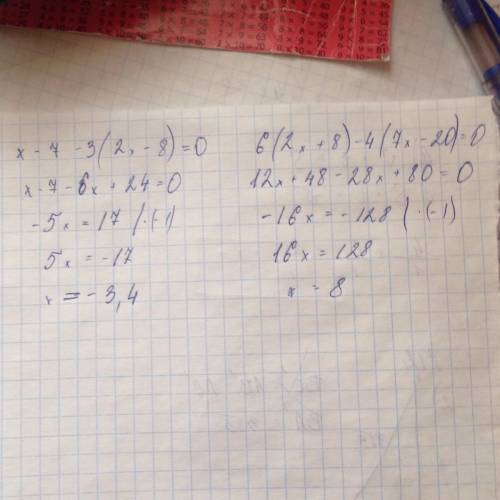 x - 7 - 3(2x - 8) = 0
x - 7 - 6x + 24 = 0
-5x = 17 / ·(-1)
5x = -17
x = -3,4
6(2x + 8) - 4(7x - 20) = 0
12x + 48 - 28x + 80 = 0
-16x = -128 / ·(-1)
16x = 128
x = 8